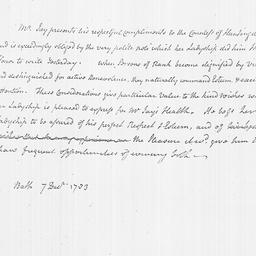 Mr. Jay presents his respectful compliments to the Countess of
and is exceedingly obliged by the very polite note which her Ladyship did him
to write Yesterday. When Persons of Rank become dignified by
and distinguished for active Benevolence, they naturally command Esteem &
These Considerations give particular value to the kind wishes
Ladyship is pleased to express for Mr Jay's Health. He begs her
Ladyship to be assured of his perfect Respect & Esteem, and of
the Pleasure it wd. give him to
have frequent opportunities of evincing both.
Bath 7 Decr. 1783